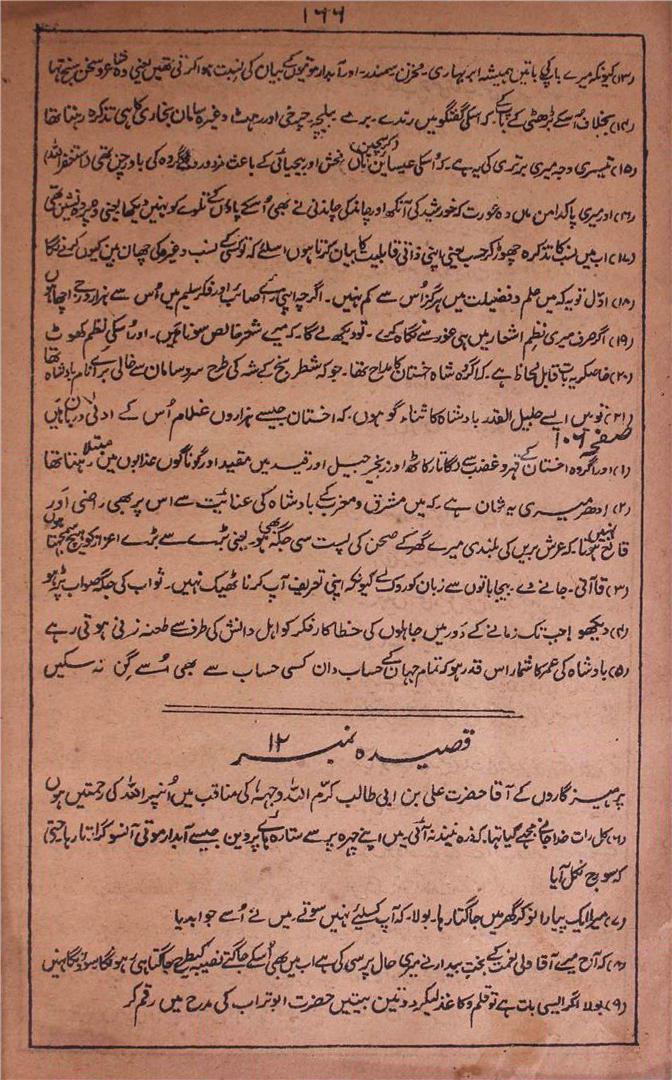 ۱۶۶
(۱۳) کیونکہ میرے باپ کی باتیں ہمیشہ ابر بہاری۔ مخزن سمندر۔ اور آبدار موتیوں کے بیان کی نسبت ہوا کرتی تھیں یعنی وہ شاعر و سخن سنج تھا
(۱۴) بخلاف اُسکے بڑھئی کے بچے کے۔ کہ اسکی گفتگو میں رندے۔ برمے بیلچہ چرخی اور رہٹ وغیرہ سامان بخاری کا ہی تذکرہ رہتا تھا
(۱۵) تیسری وجہ میری برتری کی یہ ہے۔ کہ اُسکی عیسائن ماں فحش اور بیحیائی کے باعث مزدوروں کے گروہ کی باورچن تھی (استغفر اللہ)
(۱۶) اور میری پاکدامن ماں وہ عورت کہ خورشید کی آنکھ اور چاند کی چاندنی نے بھی اُسکے پاؤں کے تلوے کو نہیں دیکھا یعنی وہ پردہ نشین تھی
(۱۷) اب میں نسب کا تذکرہ چھوڑ کر حسب یعنی اپنی ذاتی قابلیت کا بیان کرتا ہوں اسلئے کہ تو کسی کے نسب وغیرہ کی چھان بین کیوں کرنے لگا
(۱۸) اوّل تو یہ کہ میں علم و فضیلت میں ہرگز اُس سے کم نہیں۔ اگرچہ اپنی رائے صائب اور فکر سلیم میں اُس سے ہزار درجے اچھا ہوں
(۱۹) اگر صرف میری نظم اشعار میں ہی غور سے نگاہ کرے۔ تو دیکھ لے گا۔ کہ میرے شعر خالص سونا ہیں۔ اور اُسکی نظم کھوٹ
(۲۰) خاصکر یہ بات قابل لحاظ ہے۔ کہ اگر وہ شاہ اخستان کا مداح تھا۔ جو کہ شطرنج کے شہ کی طرح سر و سامان سے خالی برائے نام بادشاہ تھا
(۲۱) تو میں ایسے جلیل القدر بادشاہ کا ثناء گو ہوں۔ کہ اخستان جیسے ہزاروں غلام اُس کے ادنیٰ دربان ہیں
صفحہ ۱۰۶
(۱) اور اگر وہ اخستان کے قہر و غضب سے لگاتار کاٹھ اور زنجیر جیل اور قید میں مقید اور گوناگوں عذابوں میں مبتلا رہتا تھا
(۲) ادھر میری یہ شان ہے۔ کہ میں مشرق و مغرب کے بادشاہ کی عنائیت سے اس پر بھی راضی اور
قانع نہیں ہوتا۔ کہ عرش بریں کی بلندی میرے گھر کے صحن کی پست سی جگہ بھی ہو۔ یعنی بڑے سے بڑے اعزاز کو ہیچ سمجھتا ہوں
(۳) قاآنی۔ جانے دے۔ بیجا باتوں سے زبان کو روک لے کیونکہ اپنی تعریف آپ کرنا ٹھیک نہیں۔ ثواب کی جگہ صواب پڑھو
(۴) دیکھو! جب تک زمانے کے دَور میں جاہلوں کی خطا کار فکر کو اہل دانش کی طرف سے طعنہ زنی ہوتی رہے
(۵) بادشاہ کی عمر کا شمار اس قدر ہو کہ تمام جہان کے حساب دان کسی حساب سے بھی اُسے گن نہ سکیں
قصیدہ نمبر ۱۲
پرہیزگاروں کے آقا حضرت علی بن ابی طالب کرّم اللہ وجہہ کی مناقب میں اُنپر اللہ کی رحمتیں ہوں
(۶) کل رات خدا جانے مجھے کیا تھا۔ کہ ذرہ نیند نہ آئی۔ میں اپنے چہرہ پر سے ستارہ ہائے پروین جیسے آبدار موتی آنسو گراتا رہا۔ حتیٰ
کہ سورج نکل آیا
(۷) میرا ایک پیارا نوکر گھر میں جاگتا رہا۔ بولا۔ کہ آپ کسلئے نہیں سوتے۔ میں نے اُسے جواب دیا
(۸) کہ آج میرے آقا ولی نعمت کے بخت بیدار نے میری حال پرسی کی ہے اب میں بھی اُسکے جاگتے نصیبہ کیطرح جاگتا ہی رہونگا سوؤنگا نہیں
(۹) بولا اگر ایسی بات ہے تو قلم و کاغذ لیکر دو تین بیتیں حضرت ابوتراب کی مدح میں رقم کر